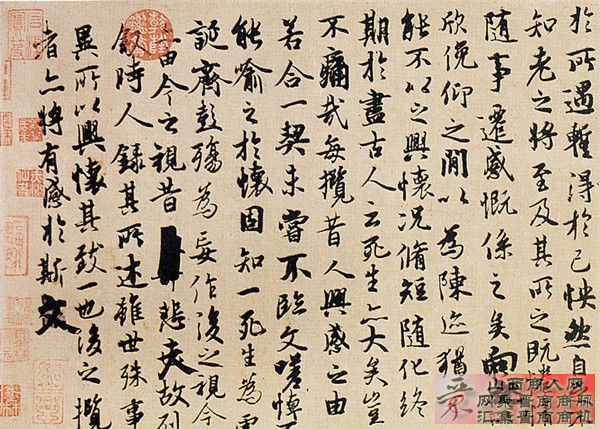 於所遇蹔得於己怏然自
知老之將至及其所之既
隨事遷感慨係之矣向
欣俛仰之閒以為陳迹猶
能不以之興懷況脩短隨化終
期於盡古人云死生亦大矣豈
不痛哉每攬昔人興感之由
若合一契未嘗不臨文嗟悼
能喻之於懷固知一死生為虛
誕齊彭殤為妄作後之視今
由今之視昔悲夫故列
敘時人錄其所述雖世殊事
異所以興懷其致一也後之攬
者亦將有感於斯文
山西商人网